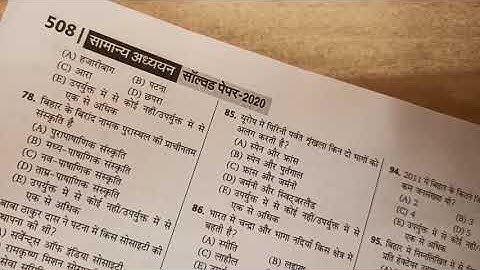 508 | सामान्य अध्ययन सॉल्वड पेपर-2020
(A) हजारीबाग (B) पटना
(C) आरा (D) छपरा
(E) उपर्युक्त में से कोई नहीं/उपर्युक्त में से
एक से अधिक
78. बिहार के बिराद नामक पुरास्थल की प्राचीनतम
संस्कृति है
(A) पुरापाषाणिक संस्कृति
(B) मध्य-पाषाणिक संस्कृति
(C) नव-पाषाणिक संस्कृति
(D) ताम्र-पाषाणिक संस्कृति
(E) उपर्युक्त में से कोई नहीं/उपर्युक्त में से
एक से अधिक
बाबा ठाकुर दास ने पटना में किस सोसाइटी की
थापना की थी?
सर्वेन्ट्स ऑफ इंडिया सोसाइटी
रामकृष्ण मिशन
85. यूरोप में पिरिनी पर्वत शृंखला किन दो भागों को
अलग करती है?
(A) स्पेन और फ्रांस
(B) स्पेन और पुर्तगाल
(C) फ्रांस और जर्मनी
(D) जर्मनी और स्विट्जरलैंड
(E) उपर्युक्त में से कोई नहीं/उपर्युक्त में से
एक से अधिक
86. भारत में चन्द्रा और भागा नदियाँ किस क्षेत्र में
बहती हैं?
(A) स्पीति
(B) लद्दाख
(C) लाहौल
94. 2011 में बिहार के कितने
कम जनसंख्या थी?
(A) 2 (B) 3
(C) 4 (D) 5
(E) उपर्युक्त में से कोई
एक से अधिक
95. बिहार में निम्नलिखित में से
प्रति हेक्टेयर